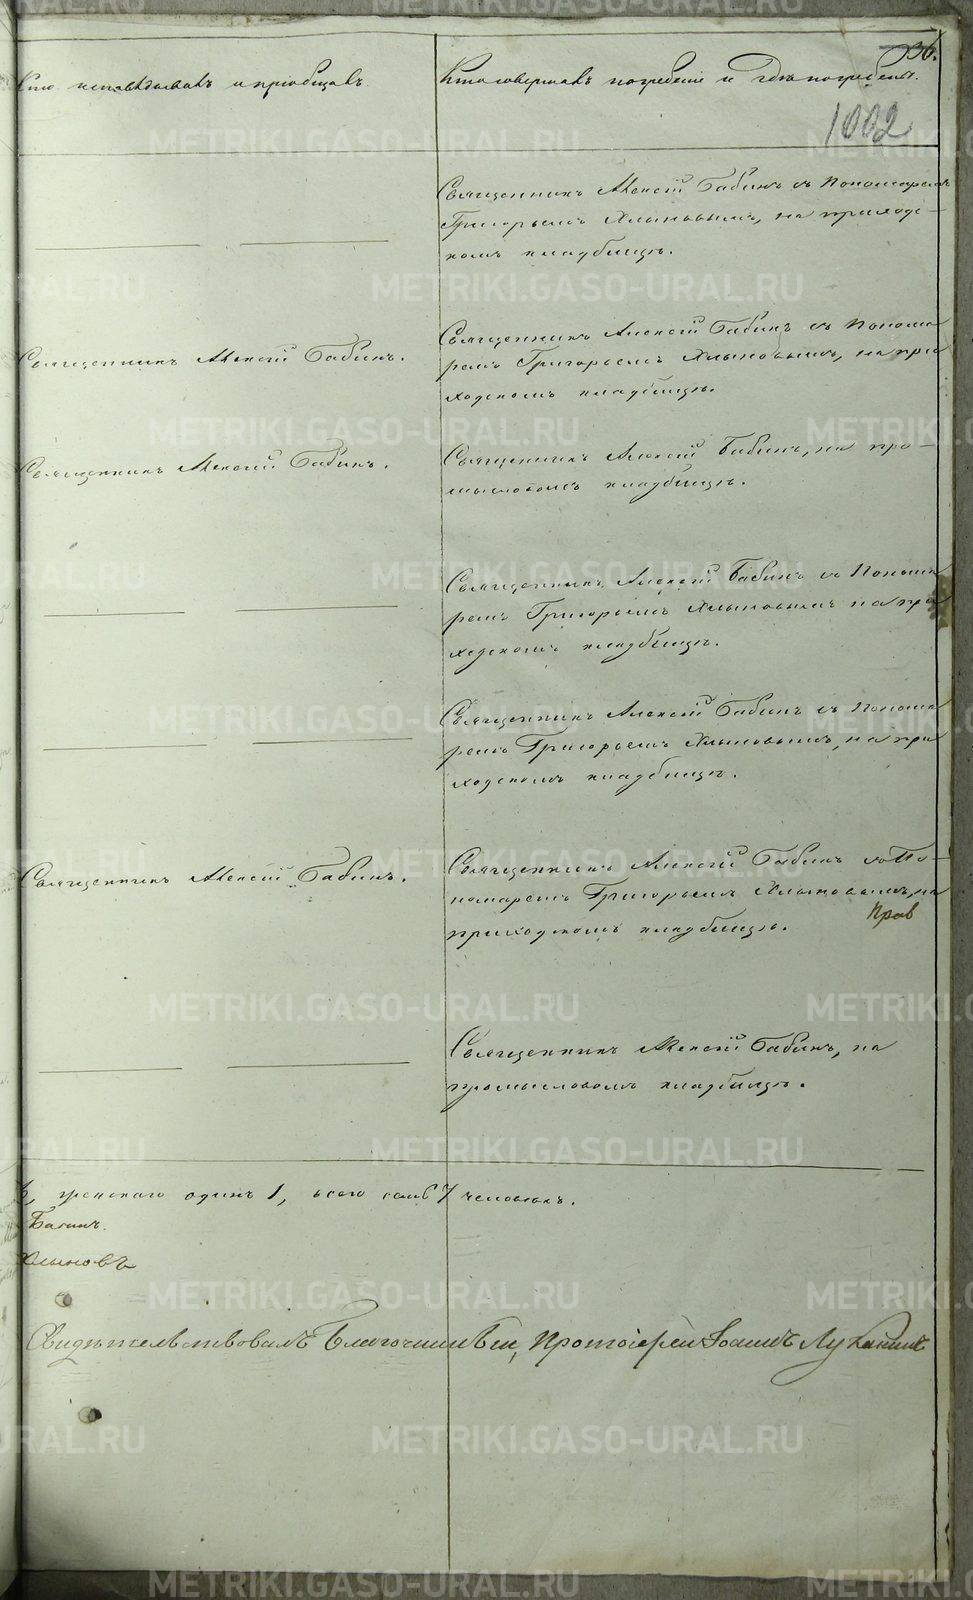 36.
Кто исповѣдывалъ и пріобщалъ.
Кто совершалъ погребеніе и гдѣ погребены.
1002
Священникъ Алексій Бабинъ съ Пономаремъ
Григорьемъ Хлыновымъ, на приход-
комъ кладбищѣ.
Священникъ Алексій Бабинъ.
Священникъ Алексій Бабинъ съ Понома
ремъ Григорьемъ Хлыновымъ, на при
ходскомъ кладбищѣ.
Священникъ Алексій Бабинъ.
Священникъ Алексій Бабинъ, на про-
мысловомъ кладбищѣ.
Священникъ Алексій Бабинъ съ Понома
ремъ Григорьемъ Хлыновымъ на при
ходскомъ кладбищѣ.
Священникъ Алексій Бабинъ съ Понома
ремъ Григорьемъ Хлыновымъ, на при
ходскомъ кладбищѣ.
Священникъ Алексій Бабинъ.
Священникъ Алексій Бабинъ съ По-
номаремъ Григорьемъ Хлыновымъ, на
приходскомъ кладбищѣ.
Прав
Священникъ Алексій Бабинъ, на
промысловомъ кладбищѣ.
6, женскаго одинъ 1, всего семь 7 человѣкъ.
Бабинъ.
Хлыновъ
Свидѣтельствовалъ Благочинный, Протоіерей Іоаннъ Луканинъ
METRIKI.GASO-URAL.RU